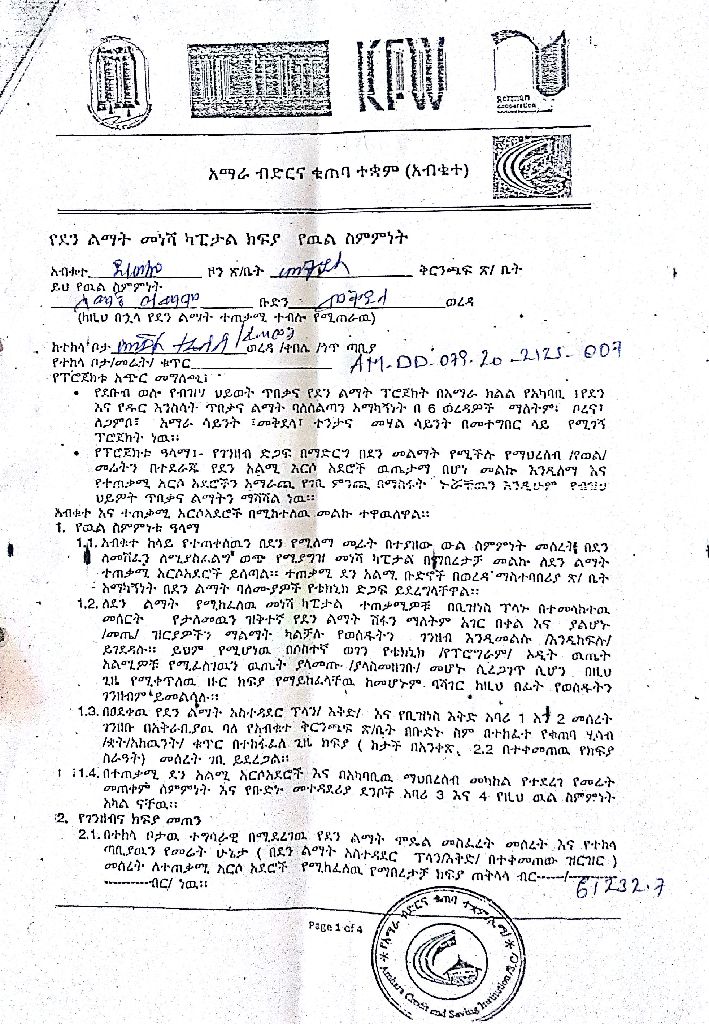 KFW
German
cooperation
አማራ ብድርና ቁጠባ ተቋም (አብቁተ)
የደን ልማት መነሻ ካፒታል ክፍያ የዉል ስምምነት
አብቁተ ዞን ጽ/ቤት ቅርንጫፍ ጽ/ ቤት
ይህ የዉል ስምምነት
ቡድን ወረዳ
(ከዚህ በኋላ የደን ልማት ተጠቃሚ ተብሎ የሚጠራዉ)
ከተከላ ቦታ ወረዳ /ቀበሌ /ነጥ ጣቢያ
የተከላ ቦታ/መሬት/ ቁጥር AM-DD-079-20-2125-007
የፕሮጀክቱ አጭር መግለጫ፤
• የደቡብ ወሎ የብዝሃ ህይወት ጥበቃና የደን ልማት ፕሮጀክት በአማራ ክልል የአካባቢ ፤የደን
እና የዱር እንስሳት ጥበቃና ልማት ባለስልጣን አማካኝነት በ 6 ወረዳዎች ማለትም፡ ቦረና፣
ለጋምቦ፣ አማራ ሳይንት ፣መቅደላ፣ ተንታና መሃል ሳይንት በመተግበር ላይ የሚገኝ
ፕሮጀክት ነዉ።
• የፕሮጀክቱ ዓላማ፤- የገንዘብ ድጋፍ በማድረግ በደን መልማት የሚችሉ የማህበረሰብ /የወል/
መሬትን በተደራጁ የደን አልሚ አርሶ አደሮች ዉጤታማ በሆነ መልኩ እንዲለማ እና
የተጠቃሚ አርሶ አደሮችን አማራጫ የገቢ ምንጫ በማስፋት ኑሯቸዉን እንዲሁም የብዝሃ
ህይዎት ጥበቃና ልማትን ማሻሻል ነዉ።
አብቁተ እና ተጠቃሚ አርሶአደሮች በሚከተለዉ መልኩ ተዋዉለዋል።
1. የዉል ስምምነቱ ዓላማ
1.1. አብቁተ ከላይ የተጠቀሰዉን በደን የሚለማ መሬት በተያዘው ውል ስምምነት መሰረት በደን
ለመሸፈን ለሚያስፈልግ ወጭ የሚያግዝ መነሻ ካፒታል በማበረታቻ መልኩ ለደን ልማት
ተጠቃሚ አርሶአደሮች ይሰጣል። ተጠቃሚ ደን አልሚ ቡድኖች በወረዳ ማስተባበሪያ ጽ/ ቤት
አማካኝነት በደን ልማት ባለሙያዎች የቴክኒክ ድጋፍ ይደረግላቸዋል።
1.2. ለደን ልማት የሚከፈለዉ መነሻ ካፒታል ተጠቃሚዎቹ በቢዝነስ ፕላኑ በተመላከተዉ
መሰርት የታለመዉን ዝቅተኛ የደን ልማት ሽፋን ማለትም አገር በቀል እና ያልሆኑ
/መጤ/ ዝርያዎችን ማልማት ካልቻሉ የወሰዱትን ገንዘብ እንዲመልሱ /እንዲከፍሉ/
ይገደዳሉ። ይህም የሚሆነዉ በሶስተኛ ወገን የቴክኒክ /የፕሮግራም/ ኦዲት ዉጤት
አልሚዎቹ የሚፈለገዉን ዉጤት ያላመጡ /ያላስመዘገቡ/ መሆኑ ሲረጋገጥ ሲሆን በዚህ
ጊዜ የሚቀጥለዉ ዙር ክፍያ የማይከፈላቸዉ ከመሆኑም ባሻገር ከዚህ በፊት የወሰዱትን
ገንዘብም ይመልሳሉ።
1.3. በፀደቀዉ የደን ልማት አስተዳደር ፕላን/ እቅድ/ እና የቢዝነስ እቅድ አባሪ 1 እና 2 መሰረት
ገንዘቡ በአቅራቢያዉ ባለ የአብቁተ ቅርንጫፍ ጽ/ቤት በቡድኑ ስም በተከፈተ የቁጠባ ሂሳብ
/ቋት/አካዉንት/ ቁጥር በተከፋፈለ ጊዜ ክፍያ ( ከታች በአንቀጽ 2.2 በተቀመጠዉ የክፍያ
ስራዓት) መሰረት ገቢ ይደረጋል።
1.4. በተጠቃሚ ደን አልሚ አርሶአደሮች እና በአካባቢዉ ማህበረሰብ መካከል የተደረገ የመሬት
መጠቀም ስምምነት እና የቡድኑ መተዳደሪያ ደንቦች አባሪ 3 እና 4 የዚህ ዉል ስምምነት
አካል ናቸዉ።
2. የገንዘብና ክፍያ መጠን
2.1. በተከላ ቦታዉ ተግባራዊ በሚደረገዉ የደን ልማት ሞዴል መስፈረት መሰረት እና የተከላ
ጣቢያዉን የመሬት ሁኔታ ( በደን ልማት አስተዳደር ፕላን/እቅድ/ በተቀመጠው ዝርዝር )
መሰረት ለተጠቃሚ አርሶ አደሮች የሚከፈለዉ የማበረታቻ ክፍያ ጠቅላላ ብር-----/--------
----------ብር/ ነዉ። 61232.7
Page 1 of 4
የአማራ ብድርና ቁጠባ ተቋም
Amhara Credit and Saving Institution /S.C/